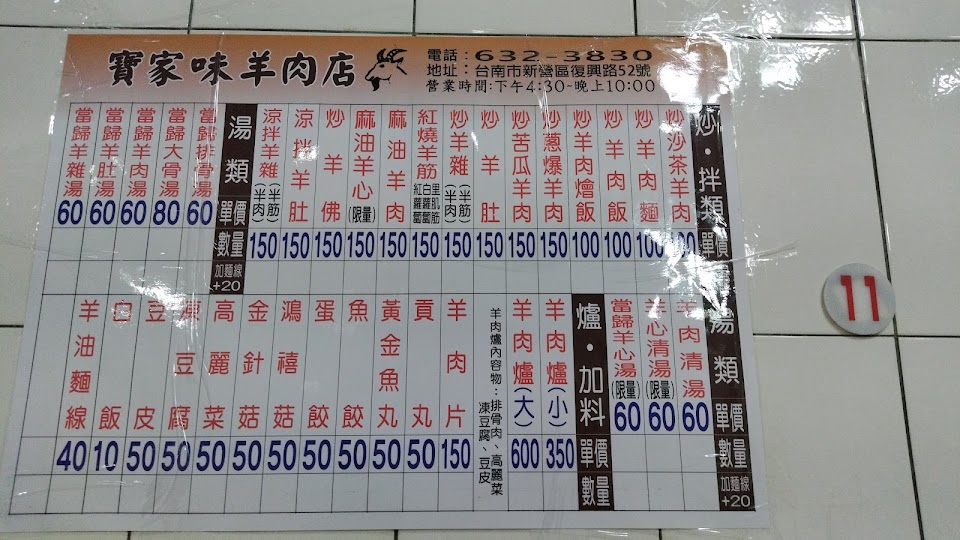 寶家味羊肉店
電話：632-3830
地址：台南市新營區復興路52號
營業時間：下午4:30-晚上10:00
炒・拌類 單價 數量
炒沙茶羊肉 100
炒羊肉麵 100
炒羊肉飯 100
羊肉燴飯 100
炒蔥爆羊肉 150
炒苦瓜羊肉 150
炒羊肚 150
炒羊雜(羊筋)(羊肉) 150
紅燒羊筋 紅蘿蔔 白蘿蔔 里肌筋 150
麻油羊肉 150
麻油羊心(限量) 150
炒羊佛 150
涼拌羊肚 150
涼拌羊雜(羊筋)(羊肉) 150
湯類 單價 數量 加麵線+20
當歸排骨湯 60
當歸大骨湯 80
當歸羊肉湯 60
當歸羊肚湯 60
當歸羊雜湯 60
湯類 單價 數量 加麵線+20
羊肉清湯 60
羊心清湯(限量) 60
當歸羊心湯(限量) 60
爐・加料 單價 數量
羊肉爐(小) 350
羊肉爐(大) 600
羊肉爐內容物：排骨肉、高麗菜
凍豆腐、豆皮
羊肉片 150
貢丸 50
黃金魚丸 50
魚餃 50
蛋餃 50
鴻禧菇 50
金針菇 50
高麗菜 50
凍豆腐 50
豆皮 50
白飯 10
羊油麵線 40
11